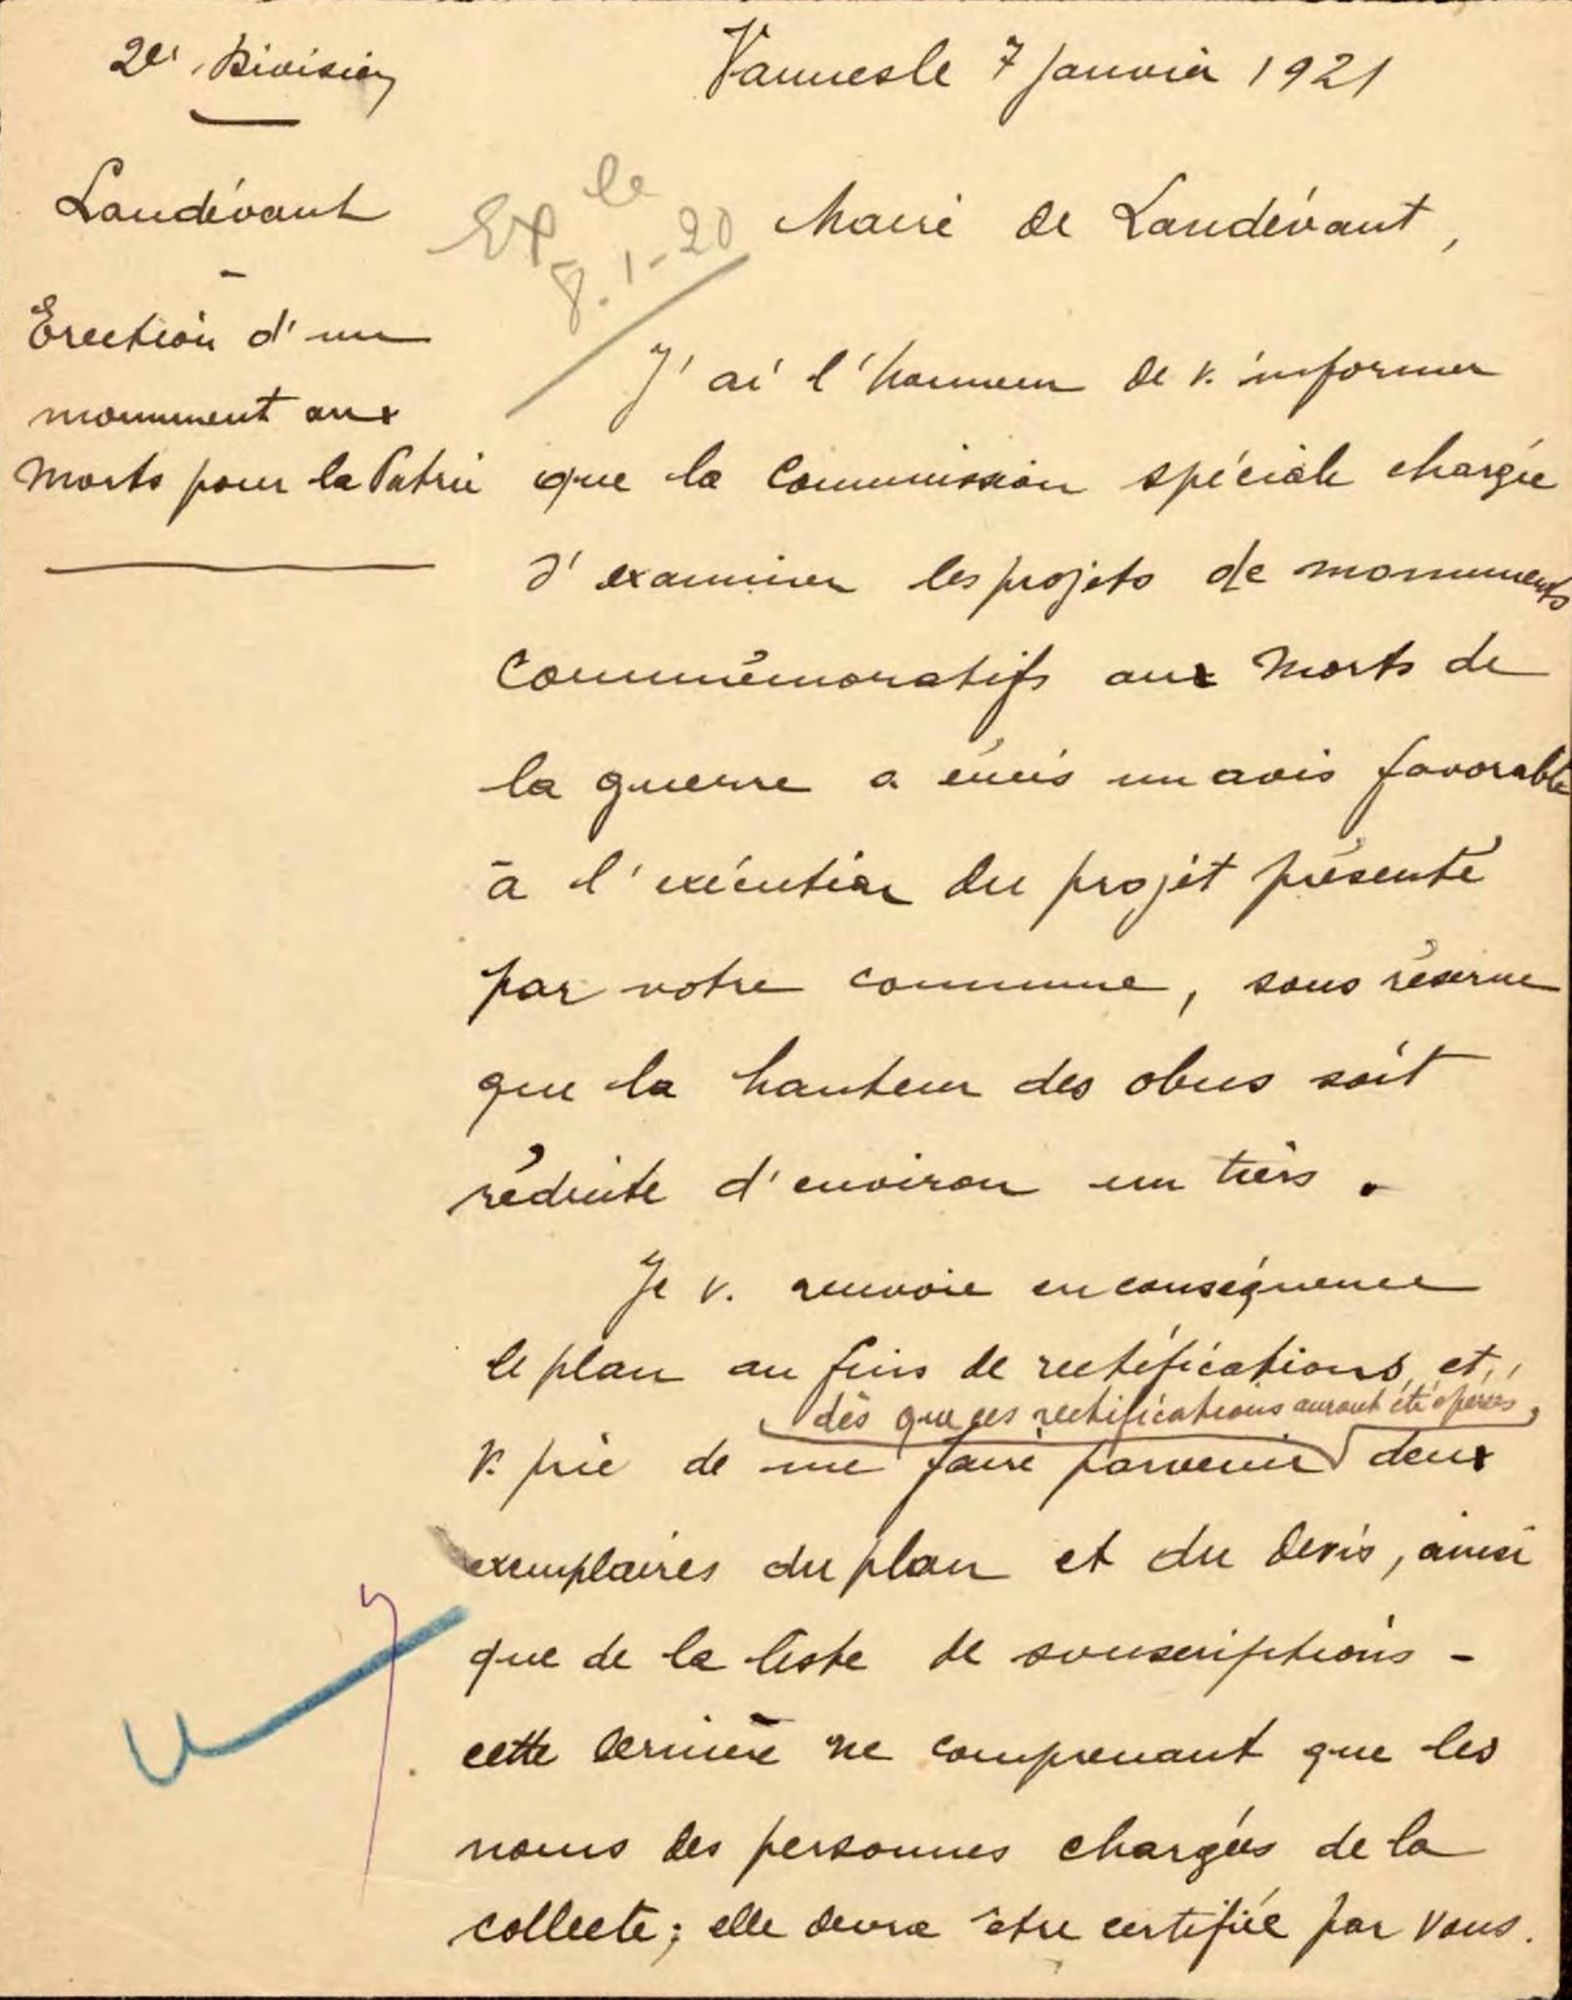 2e Division
Vannes le 7 Janvier 1921
Landévant
Ex le
8.1-20
Maire de Landévant,
Erection d'un
monument aux
Morts pour la Patrie
J'ai l'honneur de v. informer
que la Commission spéciale chargée
d'examiner les projets de monuments
commémoratifs aux Morts de
la guerre a émis un avis favorable
à l'exécution du projet présenté
par votre commune, sous réserve
que la hauteur des obus soit
réduite d'environ un tiers.
Je v. renvoie en conséquence
le plan au fins de rectifications, et,
dès que ces rectifications auront été opérées,
v. prie de me faire parvenir deux
exemplaires du plan et du devis, ainsi
que de la liste de souscriptions -
cette dernière ne comprenant que les
noms des personnes chargées de la
collecte; elle devra être certifiée par vous.